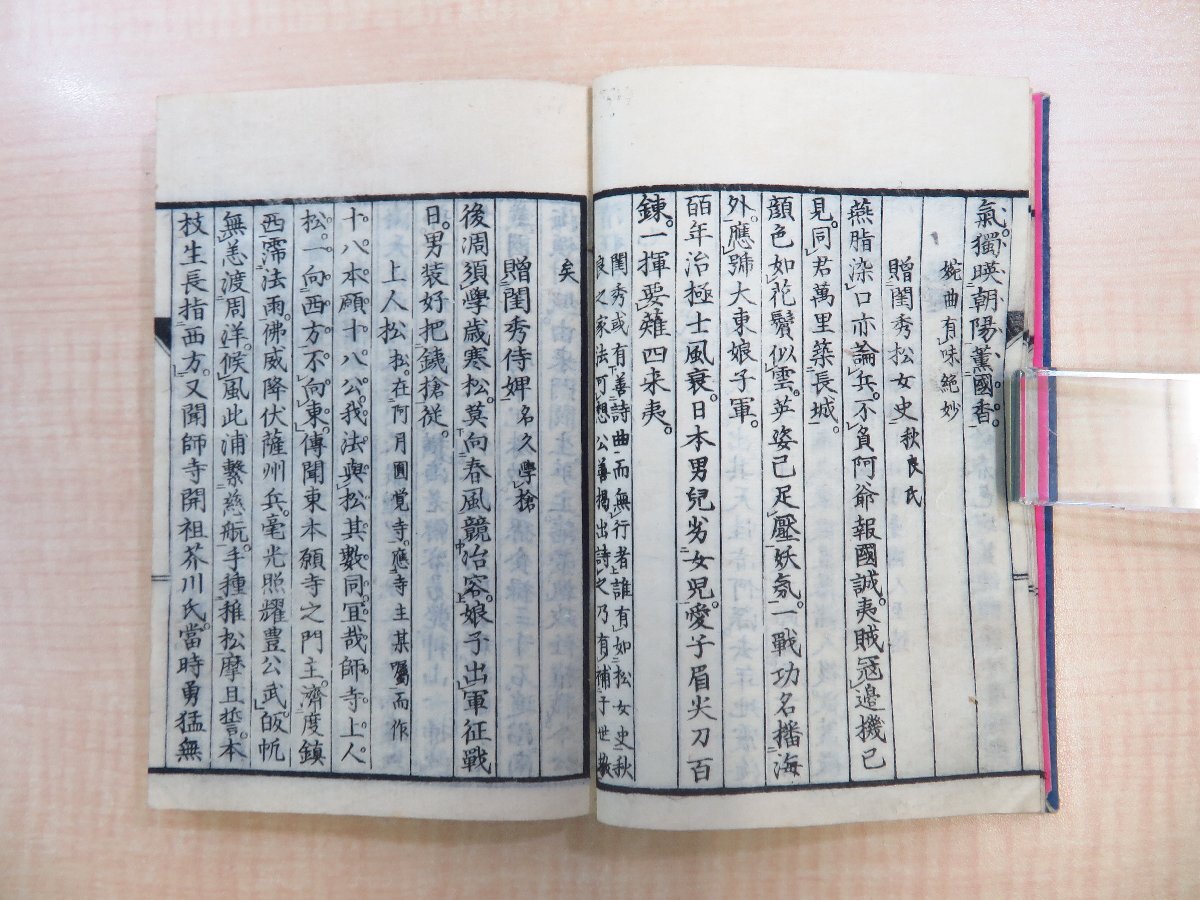 氣。獨暎朝陽薰國香。
婉曲有味絕妙
贈閨秀松女史秋良氏
燕脂染口亦論兵。不負阿爺報國誠。夷賊冦邊機已
見。同君萬里築長城。
顏色如花鬢似雲。英姿已足壓妖氛。一戰功名播海
外。應號大東娘子軍。
百年治極士風衰。日本男兒劣女兒。愛子眉尖刀百
鍊。一揮要薙四来夷。
閨秀或有善詩曲而無行者誰有如松女史秋
良之家法可想公善揭出詩之乃有補于世教
矣
贈閨秀侍婢名久學槍
後凋須學歲寒松。莫向春風競冶容。娘子出軍征戰
日。男装好把銕槍従。
上人松松在阿月圓覚寺。應寺主某嘱而作
十八本願十八公。我法與松其數同。宜哉師寺上人
松。一向西方不向東。傳聞東本願寺之門主。濟度鎮
西霈法雨。佛威降伏薩州兵。毫光照耀豊公武。皈帆
無恙渡周洋。候風此浦繋慈航。手種稚松摩且誓。本
枝生長指西方。又聞師寺開祖芥川氏。當時勇猛無